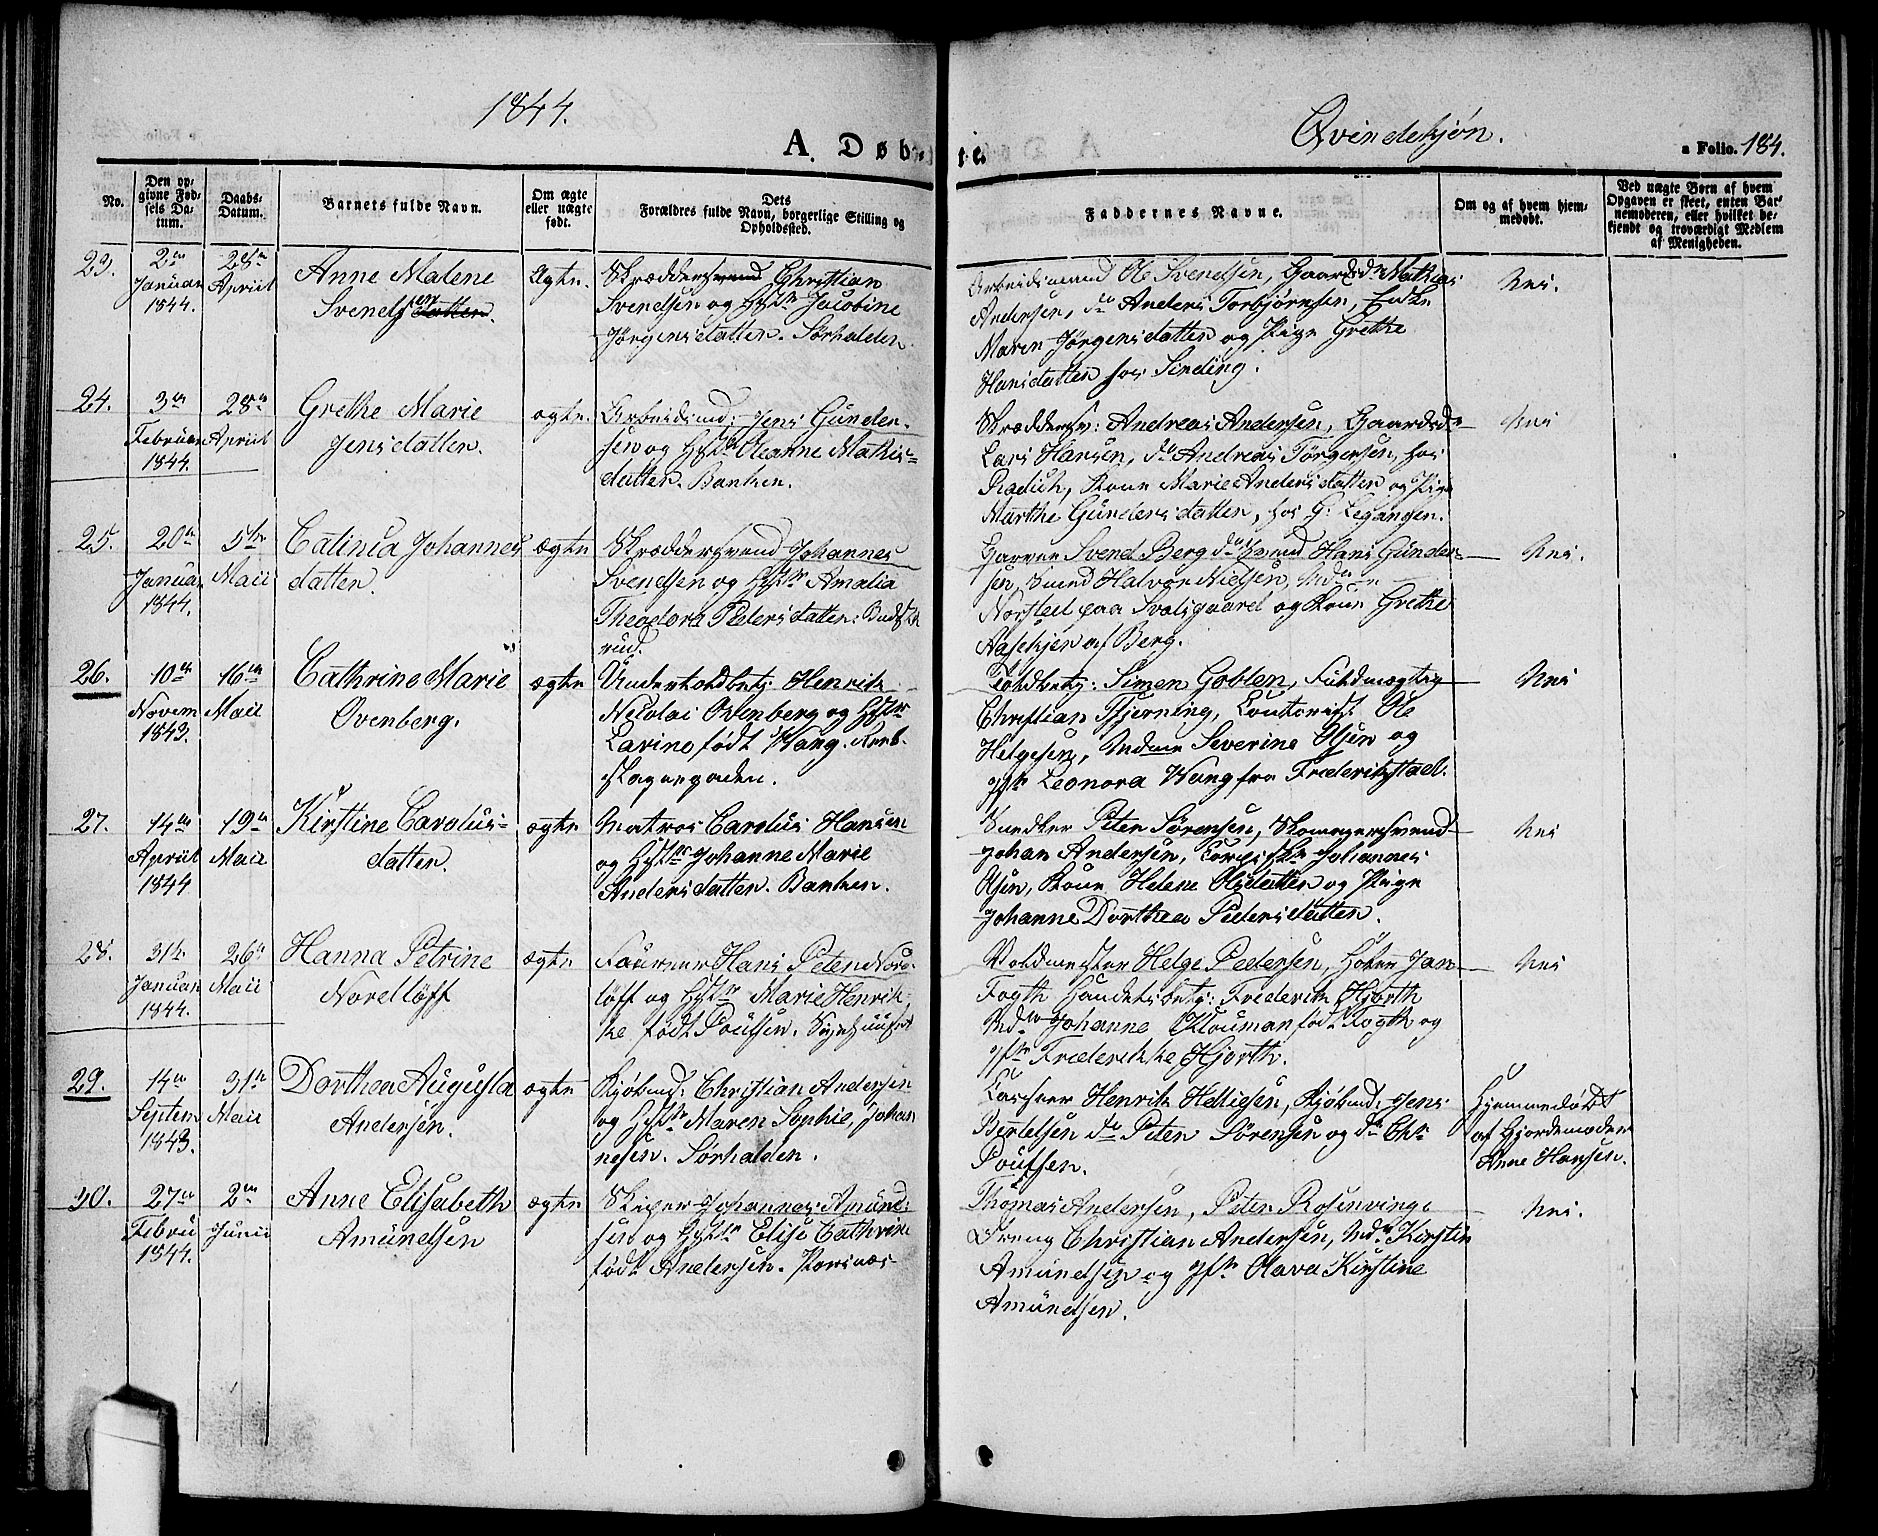 1844.
Qvindekjøn.
A. Døbte.
a Folio. 184.
No.
Den op-
givne Fød-
sels Da-
tum.
Daabs-
Datum.
Barnets fulde Navn.
Om ægte
eller uægte
født.
Dets
Forældres fulde Navn, borgerlige Stilling og
Opholdssted.
Faddernes Navne.
Om og af hvem hjem-
medøbt.
Ved uægte Børn af hvem
Opgaven er skeet, enten Bar-
nemoderen, eller hvilket be-
kjendt og troværdigt Medlem
af Menigheden.
23.
2den
Januar
1844.
28de
April
Anne Malene
Svendsen
Ægte.
Skrædder Christian
Svendsen og Hustr Jacobine
Jörgensdatter. Sörhalden.
Arbeidsmand Ole Svendsen, Gaardsd. Mathias
Andersen, do Anders Torbjörnsen, Enke
Maren Jörgensdatter og Pige Grethe
Hansdatter hos Sinding.
Nei.
24.
3die
Februar
1844.
28de
April
Grethe Marie
Jensdatter.
ægte.
Arbeidsmd: Jens Gunder-
sen og Hustr Oleanne Mathis-
datter. Banken.
Skræddersv: Andreas Andersen, Gaardsd.
Lars Hansen, do Andreas Törgersen, hos
Radich, Kone Marie Andersdatter og Pige
Marthe Gundersdatter, hos G.
Nei
25.
20de
Januar
1844.
5te
Maii
Catinca Johannes
datter.
ægte
Skræddersvend Johannes
Svendsen og Hustr Amalia
Theodora Pedersdatter.
rud.
Garver Svend Berg, Hans Gunder-
sen, Svend Halvor Nielsen, Md.
Norsted paa Svalsgaard og Kone Grethe
af Berg.
Nei.
26.
10de
Novem
1843.
16de
Maii
Cathrine Marie
Ovenberg.
ægte
Undertoldbetj. Henrik
Nicolai Ovenberg og Hustr
Larine født Wang.
Toldbetj: Simen Goblen, Fuldmægtig
Christian Tjerning, Contorist Ole
Helgesen, Madme Severine Olsen og
Jfr Leonora Wang fra Frederikstad.
Nei
27.
14de
April
1844
19de
Maii
Kirstine Carolus-
datter.
ægte
Matros Carolus Hansen
og Hustr Johanne Marie
Andersdatter. Banken.
Snedker Peter Sörensen, Skomagersvend
Johan Andersen, Johannes
Olsen, Kone Helene Olsdatter og Pige
Johanne Dorthea Pedersdatter.
Nei
28.
31te
Januar
1844.
26de
Maii
Hanna Petrine
Nordlöff
ægte
Hans Peter Nord-
löff og Hustr Marie Henrik-
ke født Poulsen.
Voldmester Helge Pedersen, Høker Jan
Fogth Handelsbetj: Frederik Hjorth
Md. Johanne Klouman født Fogth og
Jfr Frederikke Hjorth.
Nei
29.
14de
Septem
1843.
31te
Maii
Dorthea Augusta
Andersen.
ægte
Kjøbmd: Christian Andersen
og Hustr Maren Sophie, Johan
nesen. Sörhalden.
Henrik Helliesen, Kjøbmd: Jens
Bertelsen do Peter Sörensen og do Chr.
Poulsen.
Hjemmedøbt
af Jordemoder
Anne Hansen.
30.
27de
Febru
1844.
2den
Junii
Anne Elisabeth
Amundsen
ægte
Skipper Johannes Amund-
sen og Hustr Elise Cathrine
født Andersen.
Thomas Andersen, Peter Rosenvinge
Dreng Christian Andersen, Md. Kirstin
Amundsen og Jfr Olava Kirstine
Amundsen.
Nei.